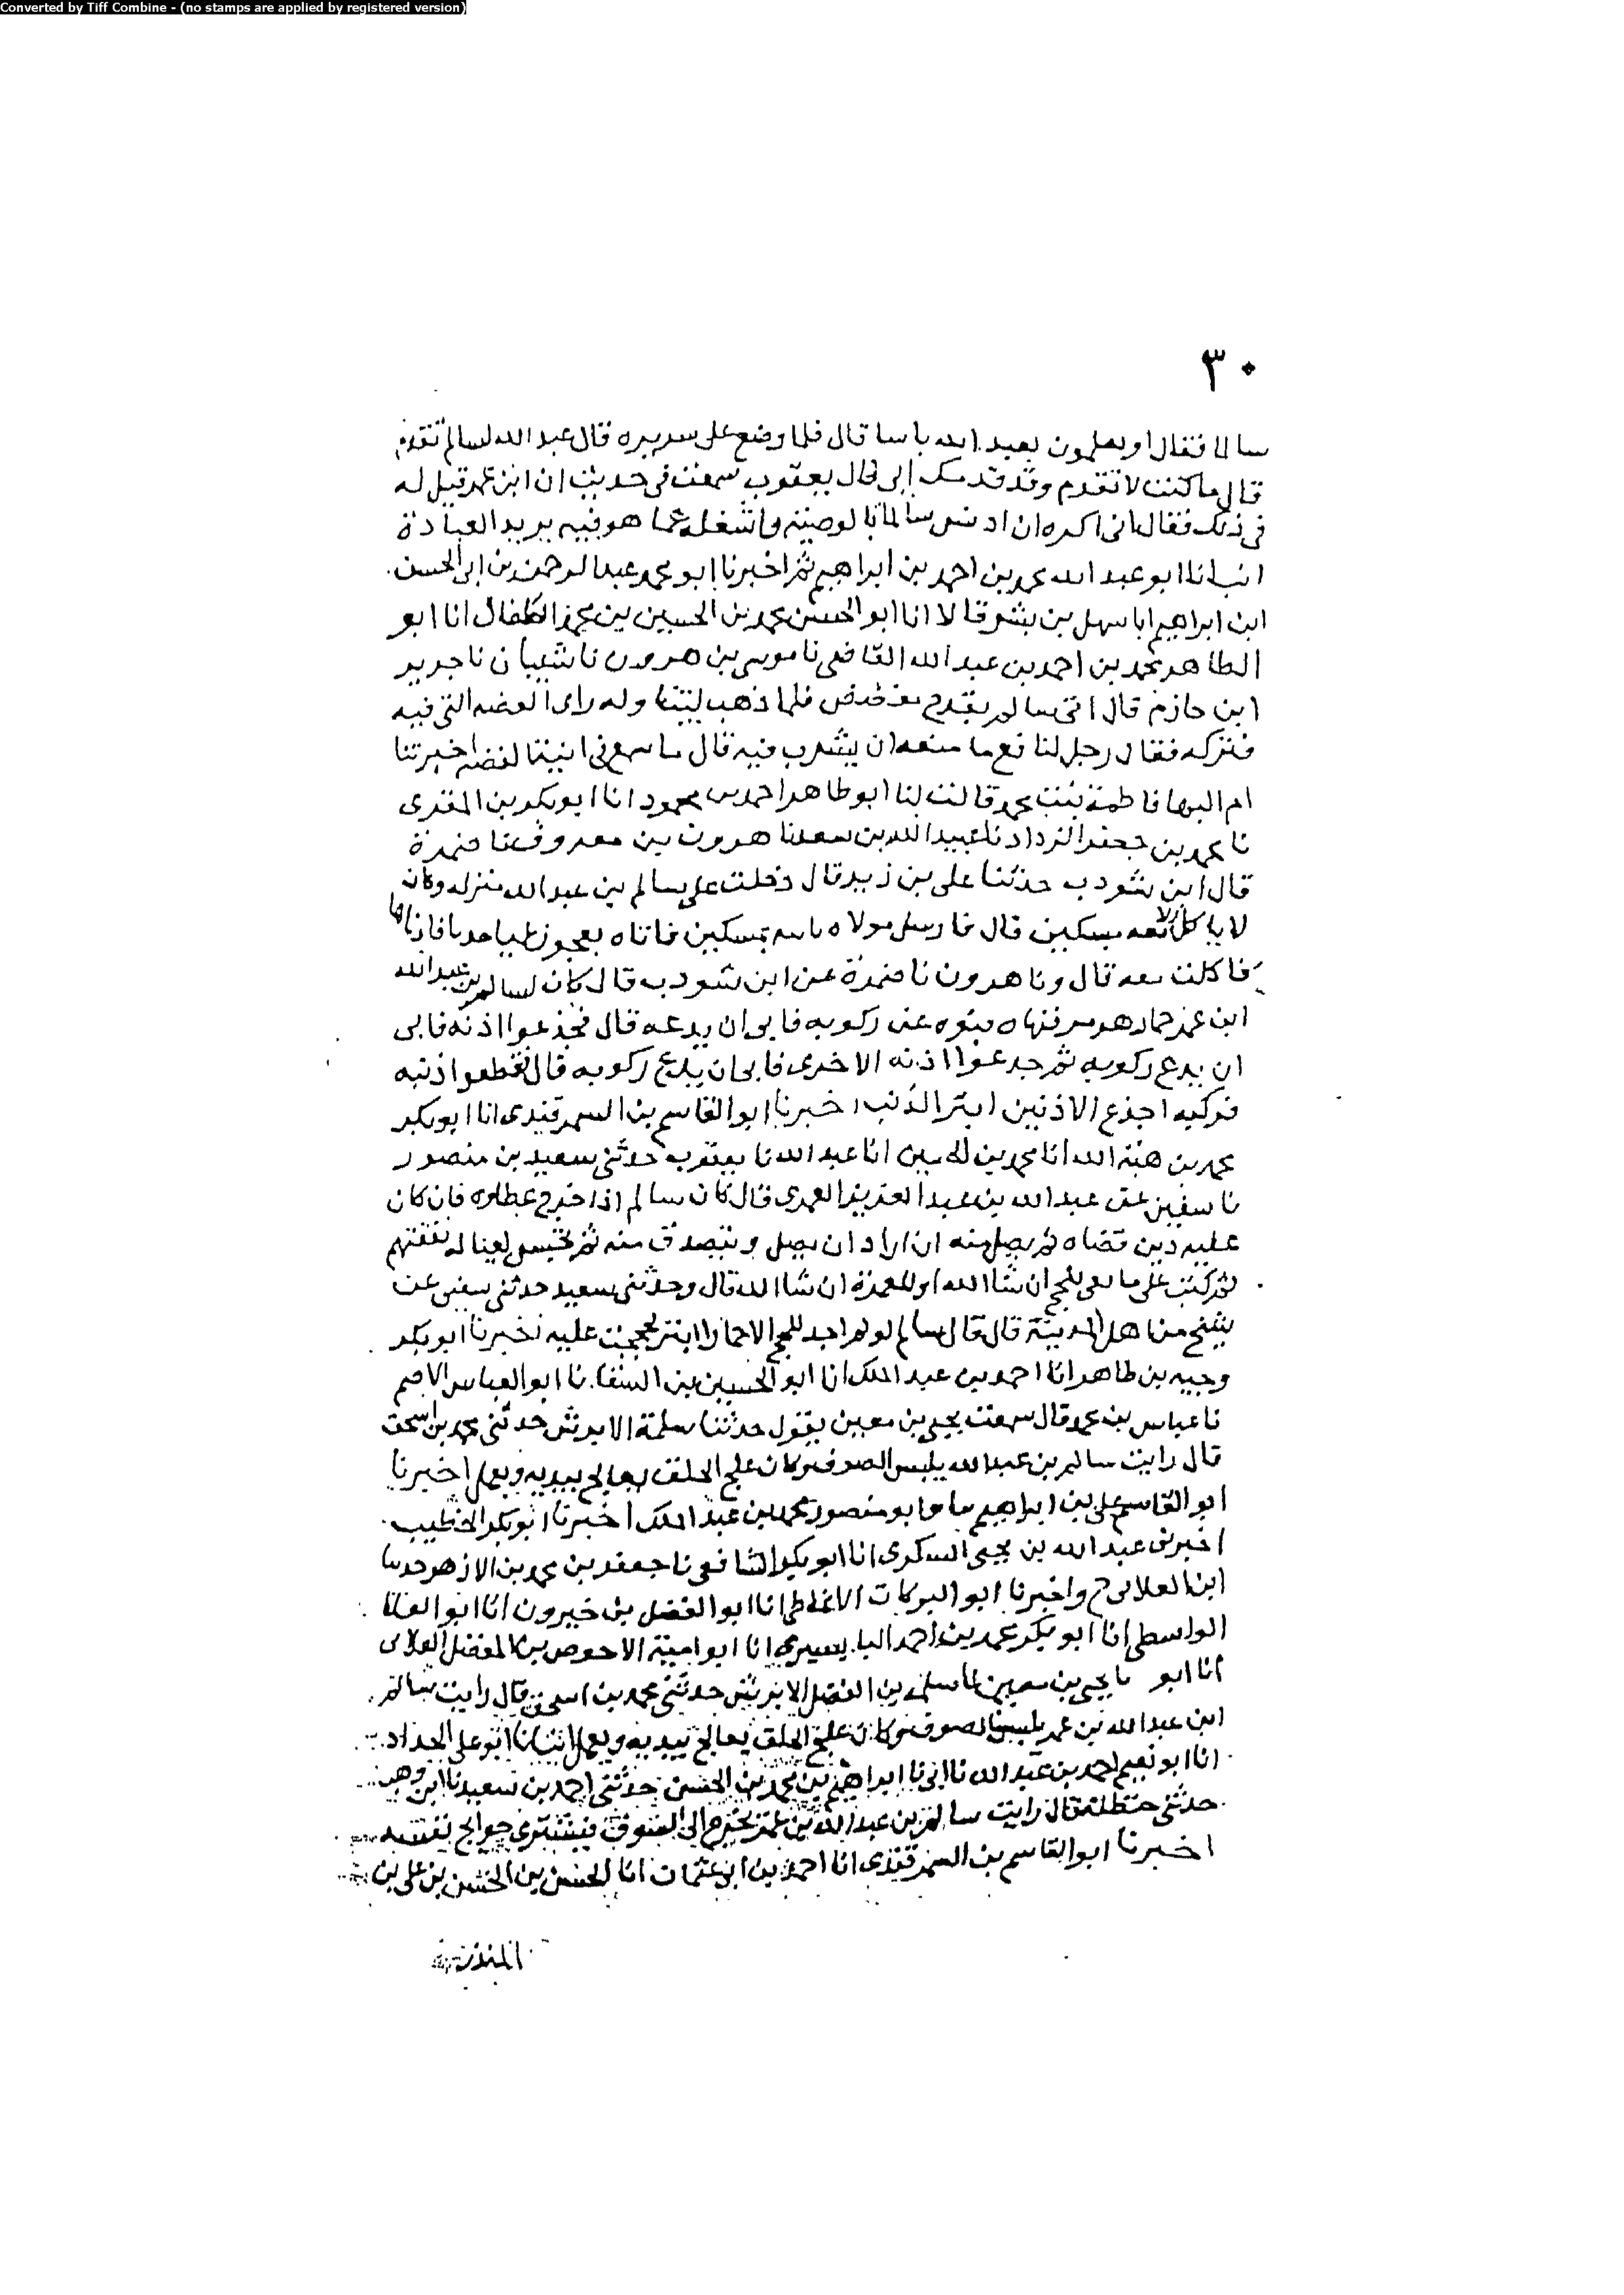 Converted by Tiff Combine - (no stamps are applied by registered version)
٣٠
سالما فقال او يعلمون بعبد الله باسا قال فلما وضع على سريره قال عبد الله لسالم تقدم
قال ما كنت لا تقدم وقد قدمك ابى قال يعقوب سمعت فى حديث ان ابن عمر قيل له
فى ذلك فقال انى اكره ان ادنس سالما بالوصية واشغله عما هو فيه يريد العبادة
انبانا ابو عبد الله محمد بن احمد بن ابراهيم ثم اخبرنا ابو محمد عبد الرحمن بن ابى الحسن
ابن ابراهيم ابا سهل بن بشر قالا انا ابو الحسن محمد بن الحسين بن محمد الطفال انا ابو
الطاهر محمد بن احمد بن عبد الله القاضى نا موسى بن هرون نا شيبان نا جرير
ابن حازم قال اتى سالم بقدح مفضض فلما ذهب ليتناوله راى الفضة التى فيه
فتركه فقال رجل لنافع ما منعه ان يشرب فيه قال ما سمع فى انية الفضة اخبرتنا
ام البها فاطمة بنت محمد قالت لنا ابو طاهر احمد بن محمود انا ابو بكر بن المقرى
نا محمد بن جعفر الزراد نا عبيد الله بن سعد نا هرون بن معروف نا ضمرة
قال ابن شوذب حدثنا على بن زيد قال دخلت على سالم بن عبد الله منزله وكان
لا ياكل الا معه مسكين قال فارسل مولاه ياسه بمسكين فاتاه بعجوز
فاكلت معه قال ونا هرون نا ضمرة عن ابن شوذب قال كان لسالم بن عبد الله
ابن عمر حمار هرم فنهاه بنوه عن ركوبه فابى ان يدعه قال فجدعوا اذنه فابى
ان يدع ركوبه ثم جدعوا اذنه الاخرى فابى ان يدع ركوبه قال فقطعوا ذنبه
فركبه اجدع الاذنين ابتر الذنب اخبرنا ابو القاسم بن السمرقندى انا ابو بكر
محمد بن هبة الله انا محمد بن الحسين انا عبد الله نا يعقوب حدثنى سعيد بن منصور
نا سفين عن عبد الله بن عبد العزيز العمرى قال كان سالم اذا خرج عطاوه فان كان
عليه دين قضاه ثم يصل منه ان اراد ان يصل ويتصدق منه ثم يحبس لعياله نفقتهم
ثم كتب على ما بقى للحج ان شا الله او للعمرة ان شا الله قال وحدثنى سعيد حدثنى سفين عن
شيخ من اهل المدينة قال قال سالم لو لم اجد للحج الا حمارا ابتر لحججت عليه اخبرنا ابو بكر
وجيه بن طاهر انا احمد بن عبد الملك انا ابو الحسين بن السقا نا ابو العباس الاصم
نا عباس بن محمد قال سمعت يحيى بن معين يقول حدثنا سلمة الابرش حدثنى محمد بن اسحق
قال رايت سالم بن عبد الله يلبس الصوف وكان علج الخلق يعالج بيديه ويعمل اخبرنا
ابو القاسم على بن ابراهيم وابو منصور محمد بن عبد الملك اخبرنا ابو بكر الخطيب
اخبرنى عبد الله بن يحيى السكرى انا ابو بكر الشافعى نا جعفر بن محمد بن الازهر
ابن الغلابى ح واخبرنا ابو البركات الانماطى انا ابو الفضل بن خيرون انا ابو العلا
الواسطى انا ابو بكر محمد بن احمد البابسيرى انا ابو امية الاحوص بن المفضل الغلابى
انا ابو نا يحيى بن معين نا سلمة بن الفضل الابرش حدثنى محمد بن اسحق قال رايت سالم
ابن عبد الله بن عمر يلبس الصوف وكان علج الخلق يعالج بيديه ويعمل انبانا ابو على الحداد
انا ابو نعيم احمد بن عبد الله نا ابى نا ابراهيم بن محمد بن الحسن حدثنى احمد بن سعيد نا ابن وهب
حدثنى حنظلة قال رايت سالم بن عبد الله بن عمر يخرج الى السوق فيشترى حوايج نفسه
اخبرنا ابو القاسم بن السمرقندى انا احمد بن ابى عثمان انا الحسن بن الحسن بن على بن
المنذر